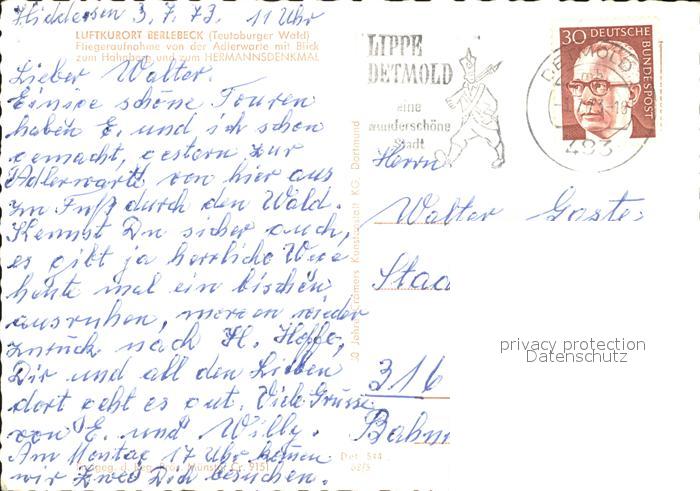 Hiddesen 3.7.73. 11 Uhr
LUFTKURORT BERLEBECK (Teutoburger Wald)
Fliegeraufnahme von der Adlerwarte mit Blick
zum Hahnberg und zum HERMANNSDENKMAL
Lieber Walter.
Einige schöne Touren
haben E. und ich schon
gemacht, gestern zur
Adlerwarte von hier aus
zu Fuß durch den Wald.
Kennst Du sicher auch,
es gibt ja herrliche Wege
heute mal ein bischen
ausruhen, morgen wieder
zurück nach H. Hoffe,
Dir und all den Lieben
dort geht es gut. Viele Grüsse
von E. und Willy.
Am Montag 17 Uhr kommen
wir zwei Dich besuchen.
Freigeg. d. Reg. Präs. Münster Nr. 9151
30 Jahre Cramers Kunstanstalt KG. Dortmund
Det. 544
62/5
LIPPE
DETMOLD
eine
wunderschöne
Stadt
DETMOLD
493
30 DEUTSCHE
BUNDESPOST
Herrn
Walter Gaste
Staa
316
Bahn
privacy protection
Datenschutz